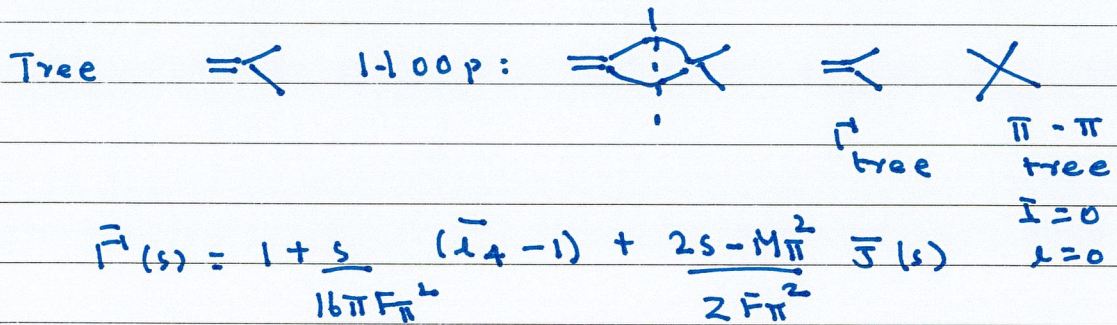 Tree 1-loop:
Γ tree π-π tree
I=0
Γ̄(s) = 1 + s/16πFπ² (l̄₄ - 1) + 2s - Mπ²/2Fπ² J̄(s) l=0